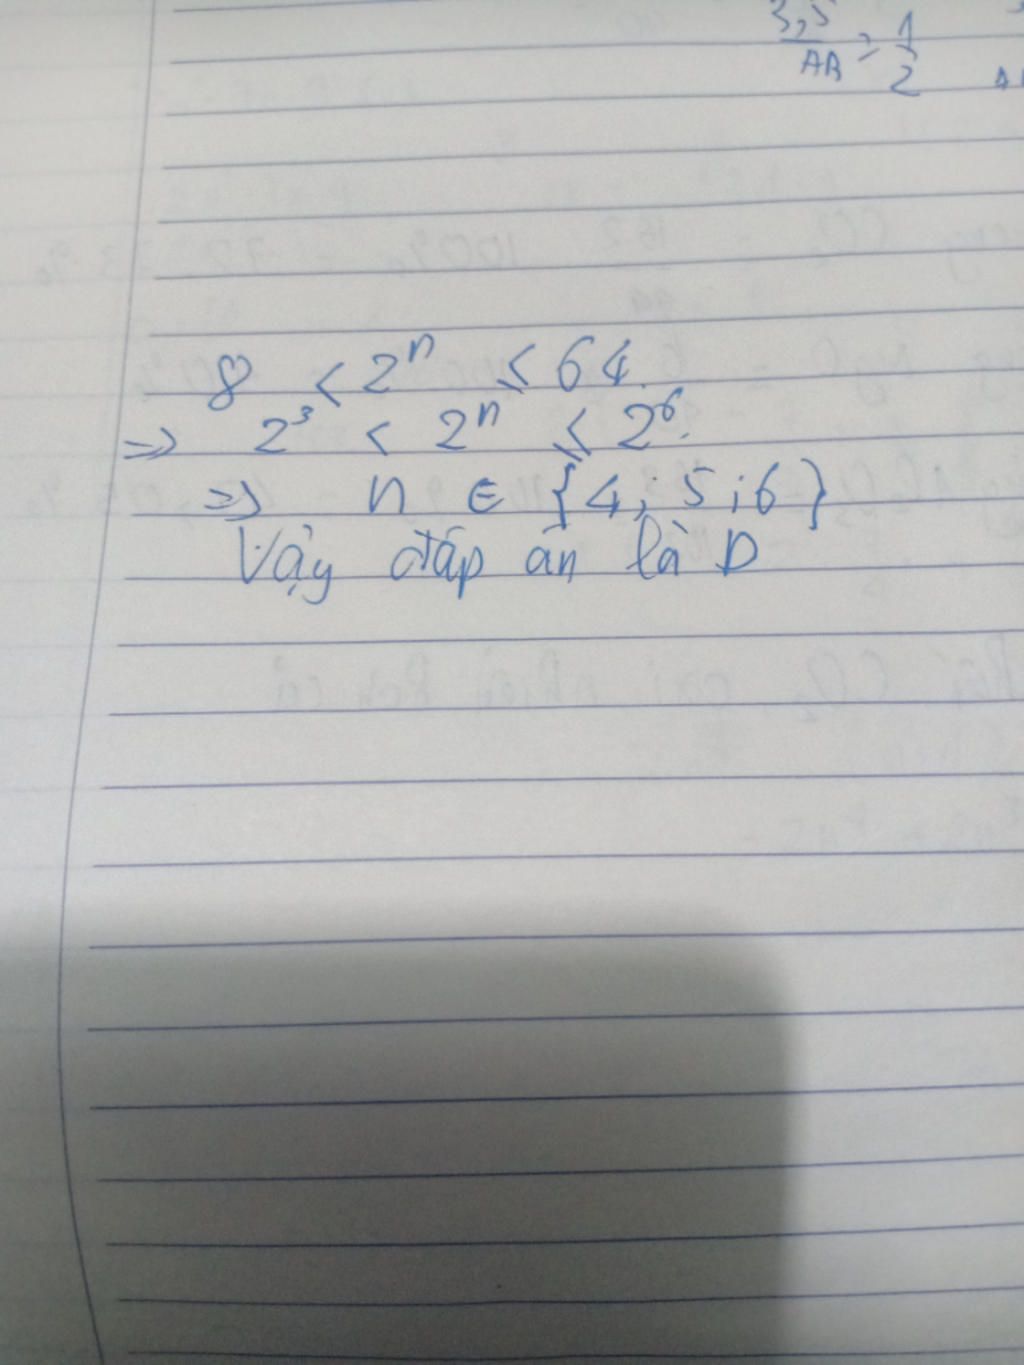 3,5/AB = 1/2
8 < 2ⁿ ≤ 64.
=> 2³ < 2ⁿ ≤ 2⁶.
=> n ∈ {4; 5; 6}
Vậy đáp án là D